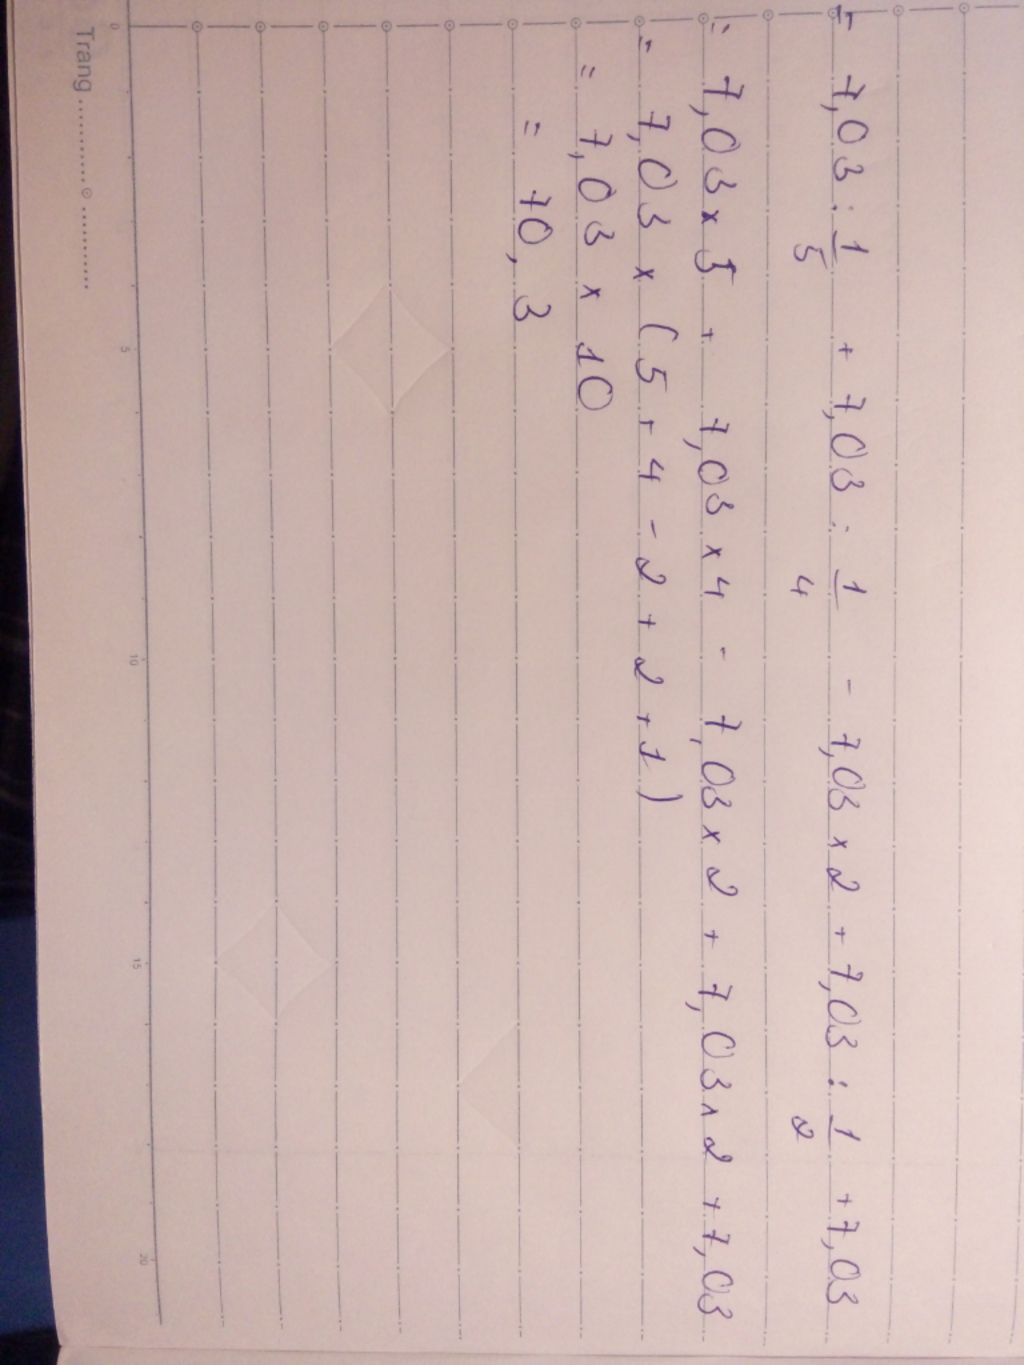 = 7,03 : 1/5 + 7,03 : 1/4 - 7,03 x 2 + 7,03 : 1/2 + 7,03
= 7,03 x 5 + 7,03 x 4 - 7,03 x 2 + 7,03 x 2 + 7,03
= 7,03 x ( 5 + 4 - 2 + 2 + 1 )
= 7,03 x 10
= 70,3
0 5 10 15 20
Trang